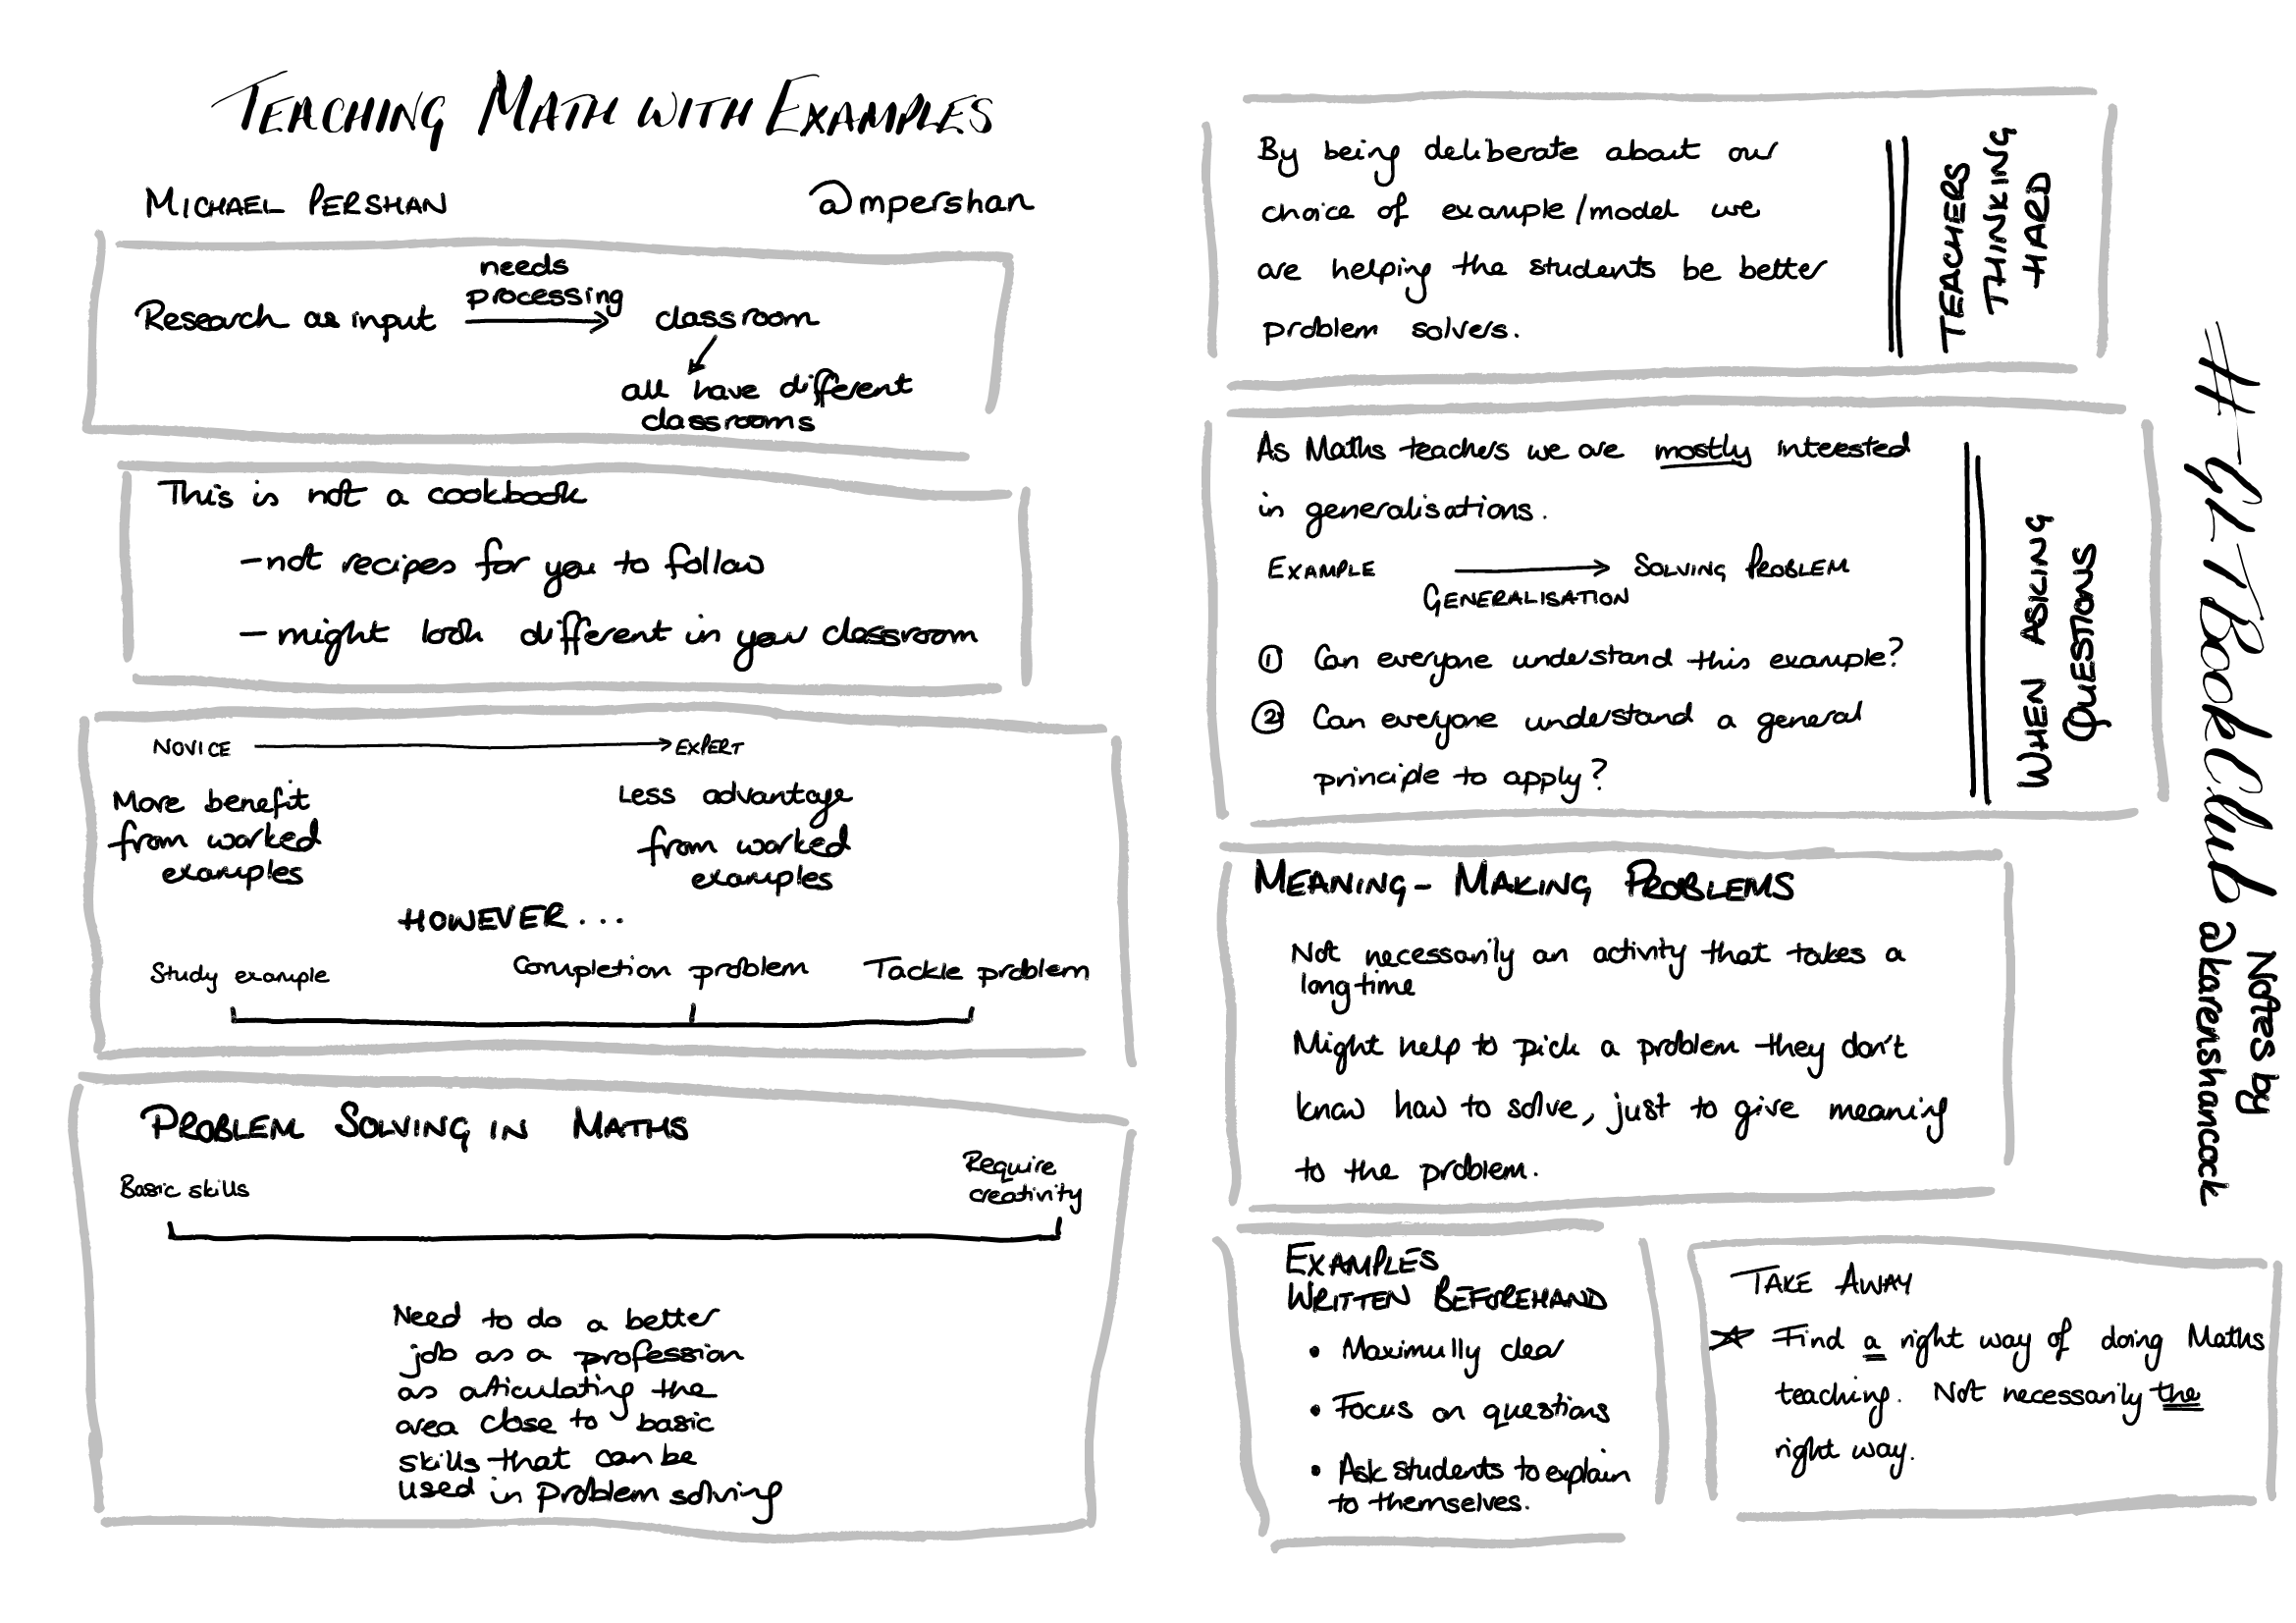 TEACHING MATH WITH EXAMPLES
MICHAEL PERSHAN @mpershan
needs
processing
Research as input classroom
all have different
classrooms
This is not a cookbook
-not recipes for you to follow
- might look different in your classroom
NOVICE EXPERT
More benefit
from worked
examples
Less advantage
from worked
examples
HOWEVER...
Study example Completion problem Tackle problem
PROBLEM SOLVING IN MATHS
Basic skills
Require
creativity
Need to do a better
job as a profession
as articulating the
area close to basic
skills that can be
used in problem solving
By being deliberate about our
choice of example/model we
are helping the students be better
problem solvers.
TEACHERS
THINKING
HARD
As Maths teachers we are mostly interested
in generalisations.
EXAMPLE SOLVING PROBLEM
GENERALISATION
① Can everyone understand this example?
② Can everyone understand a general
principle to apply?
WHEN ASKING
QUESTIONS
MEANING-MAKING PROBLEMS
Not necessarily an activity that takes a
long time
Might help to pick a problem they don't
know how to solve, just to give meaning
to the problem.
EXAMPLES
WRITTEN BEFOREHAND
• Maximully clear
• Focus on questions
• Ask students to explain
to themselves.
TAKE AWAY
Find a right way of doing Maths
teaching. Not necessarily the
right way.
#GLTBookClub
Notes by
@karenshancock